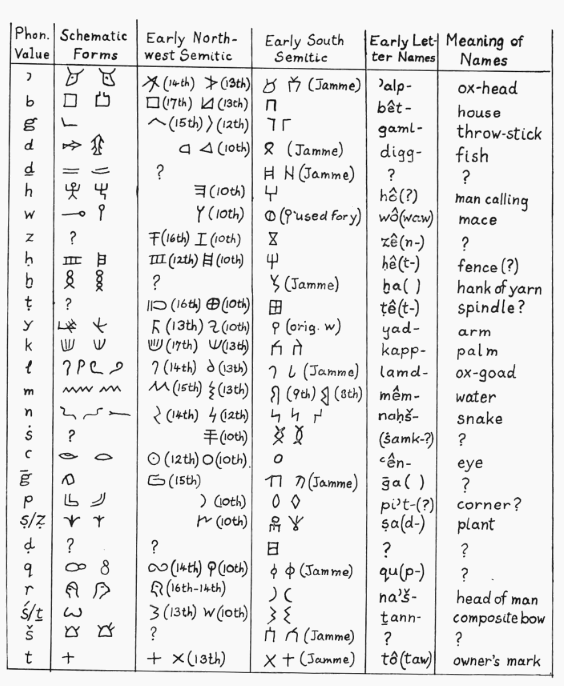 Phon. Schematic Early North- Early South Early Let- Meaning of
Value Forms west Semitic Semitic ter Names Names
ʾ (14th) (13th) (Jamme) ʾalp- ox-head
b (17th) (13th) bêt- house
g (15th) (12th) gaml- throw-stick
d (10th) (Jamme) digg- fish
ḏ ? (Jamme) ? ?
h (10th) hô(?) man calling
w (10th) (used for y) wô(waw) mace
z ? (16th) (10th) zê(n-) ?
ḥ (12th) (10th) ḥê(t-) fence (?)
ḫ ? (Jamme) ḫa( ) hank of yarn
ṭ ? (16th) (10th) ṭê(t-) spindle?
y (13th) (10th) (orig. w) yad- arm
k (17th) (13th) kapp- palm
l (14th) (13th) (Jamme) lamd- ox-goad
m (15th) (13th) (9th) (8th) mêm- water
n (14th) (12th) naḥš- snake
ṡ ? (10th) (ṡamk-?) ?
ʿ (12th) (10th) ʿên- eye
ḡ (15th) (Jamme) ḡa( ) ?
p (10th) piʾt-(?) corner?
ṣ/ẓ (10th) ṣa(d-) plant
ḍ ? ? ? ?
q (14th) (10th) (Jamme) qu(p-) ?
r (16th-14th) naʾš- head of man
ś/ṯ (13th) (10th) ṯann- composite bow
š ? (Jamme) ? ?
t + + × (13th) × + (Jamme) tô(taw) owner's mark